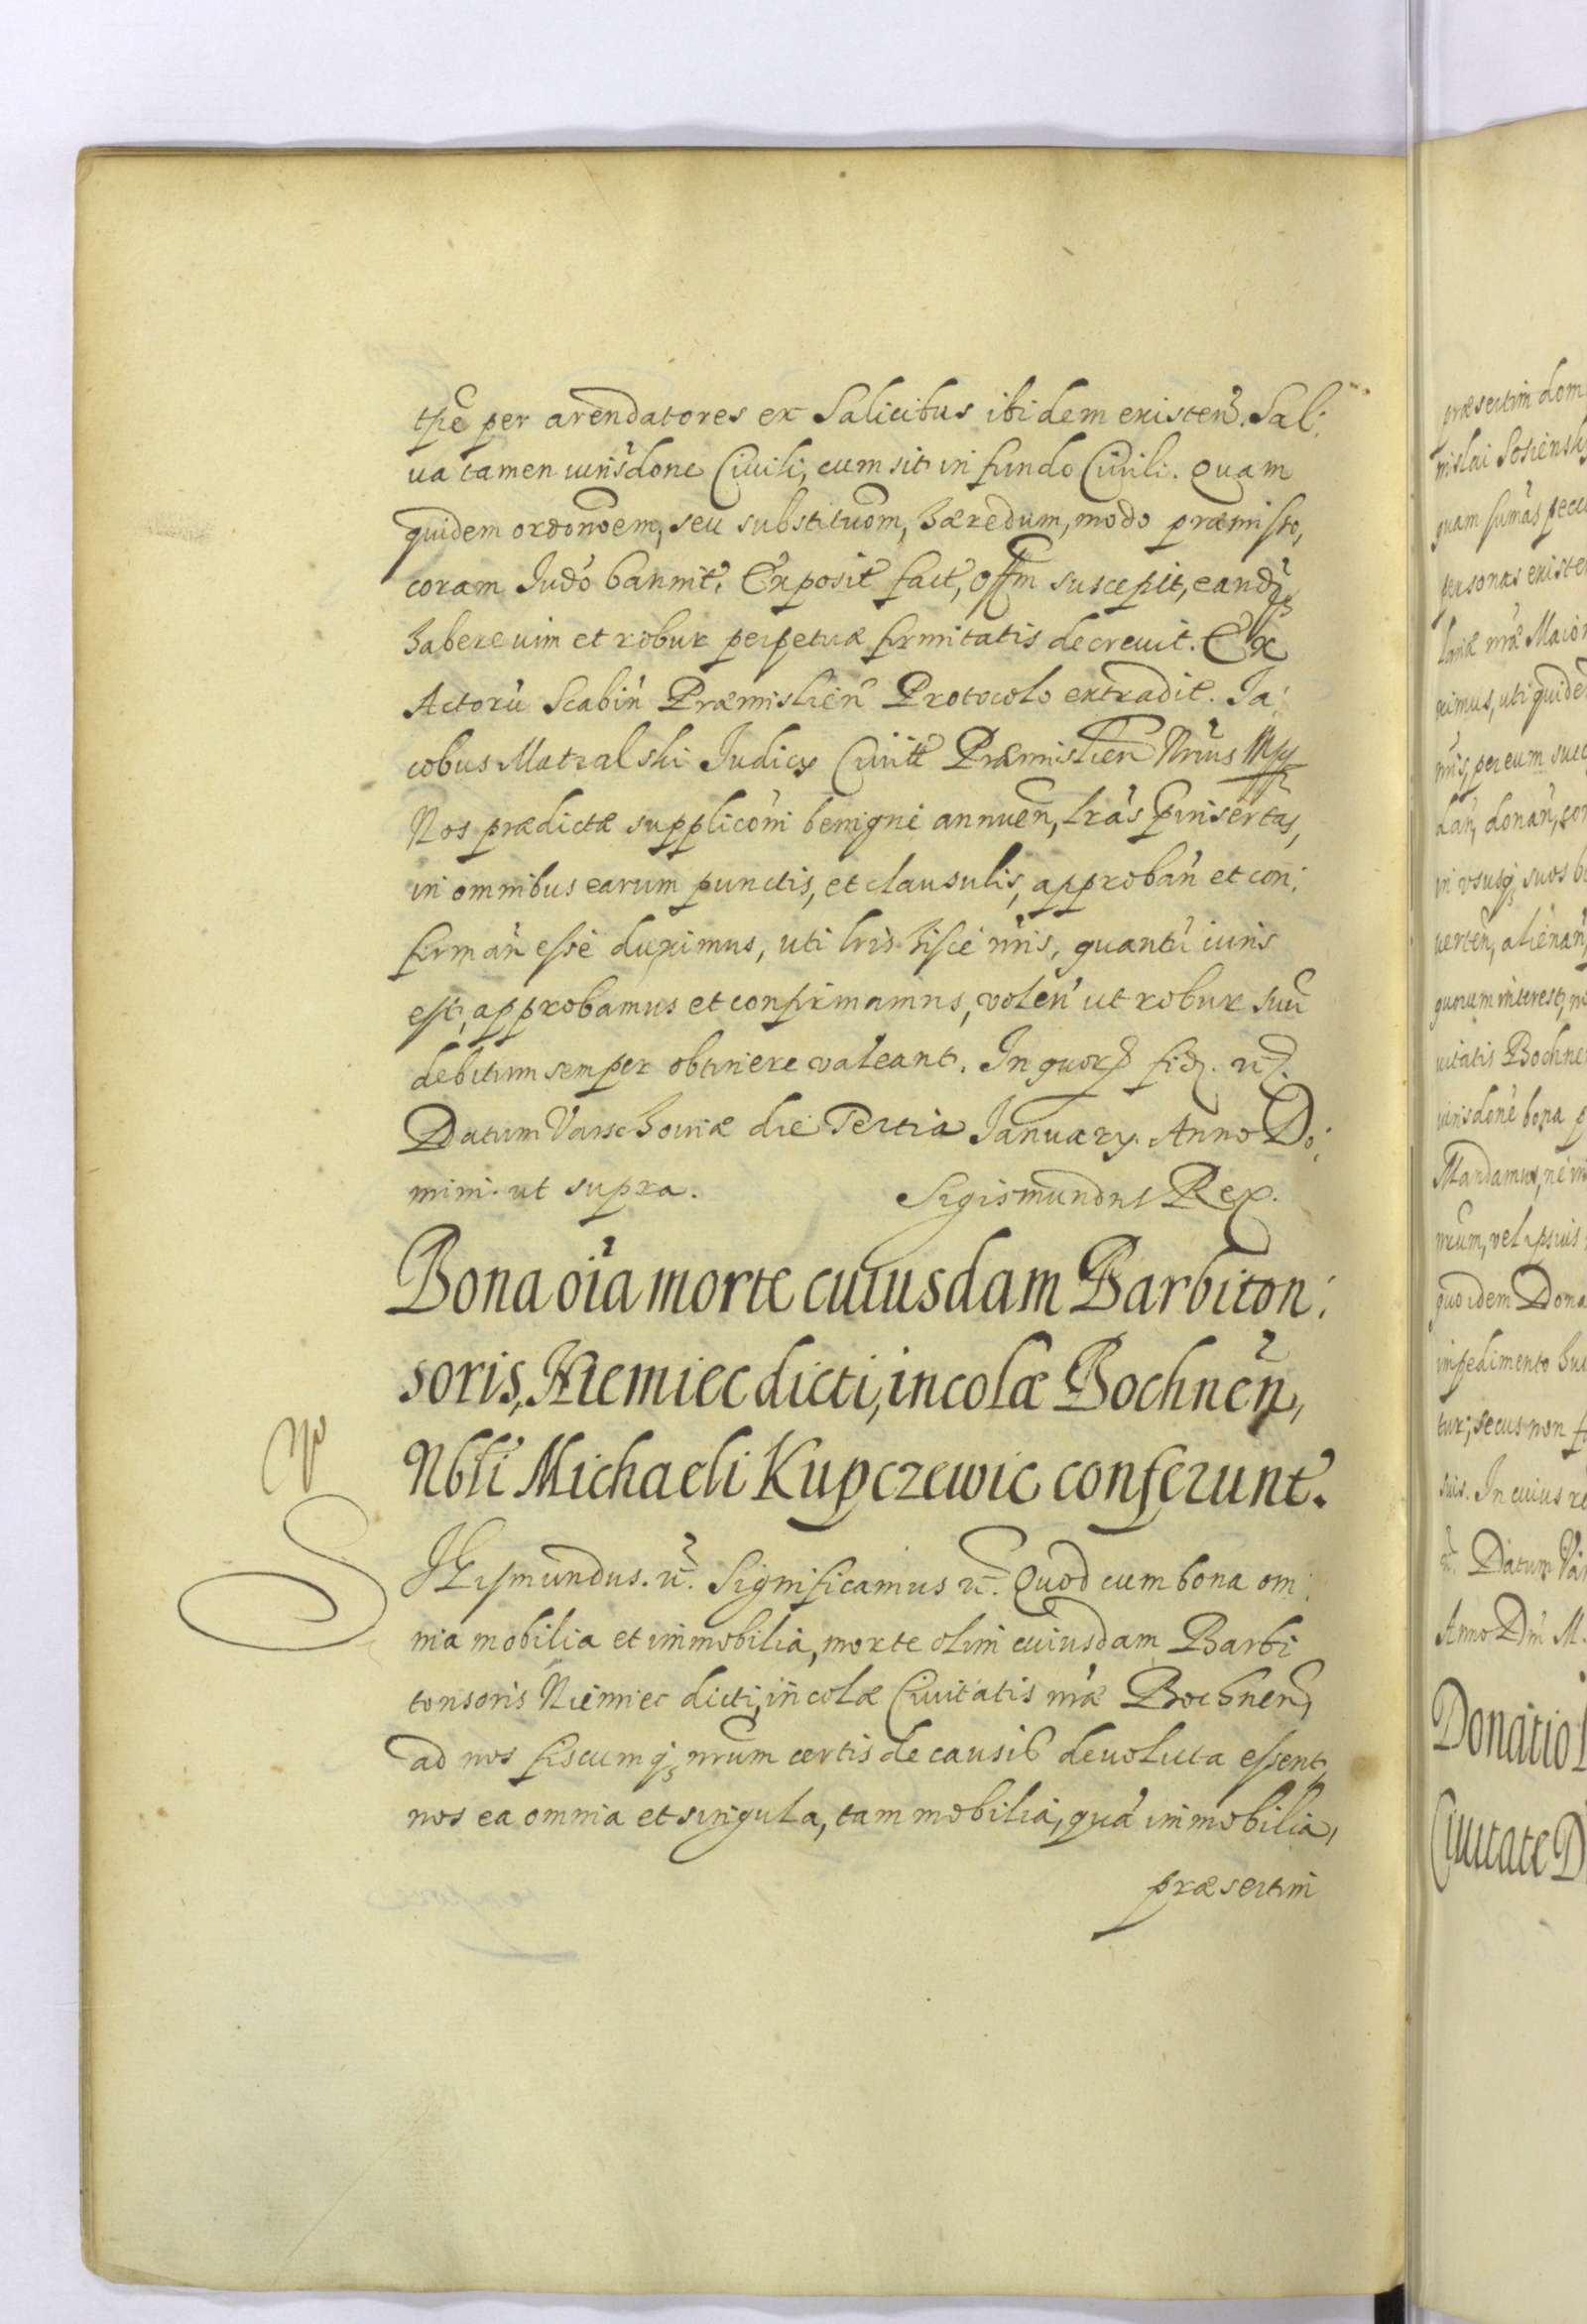 tpe per arendatores ex Salicibus ibidem existen. Sal:
ua tamen iurisdone Ciuili, cum sit in fundo Ciuili. Quam
quidem ordonoem, seu substituom, hæredum, modo præmisso,
coram Iudo bannit, Exposit fact, Offm suscepit, eandq
habere uim et robur perpetuæ firmitatis decreuit. Ex
Actorū Scabin Præmislien Protocolo extradit. Ia:
cobus Matzalski Iudicÿ Ciuitt Præmislien Nrius Mpp
Nos prædictæ supplicōni benigne annuen, lras pinsertas,
in omnibus earum punctis, et clausulis, approban et con:
firman esse duximus, uti lris hisce nris, quantū iuris
est, approbamus et confirmamus, volen ut robur suū
debitum semper obtinere valeant. In quorū fid. etc.
Datum Varschouiæ die Tertia Ianuarÿ. Anno Do:
mini ut supra. Sigismundus Rex.
Bona oīa morte cuiusdam Barbiton:
soris, Niemiec dicti, incolæ Bochnen,
Nbli Michaeli Kupczewic conferunt.
SIgismundus. etc. Significamus etc. Quod cum bona om:
nia mobilia et immobilia, morte olim cuiusdam Barbi
tonsoris Niemiec dicti, incolæ Ciuitatis nræ Bochnen,
ad nos fiscumq nrum certis de causis deuoluta essent,
nos ea omnia et singula, tam mobilia, quā immobilia,
præsertim
præsertim dom
mislai Sosiensk
quam sumas pecu
personas existe
uti quide
per eum succ
donan, con
in vsusq suos be
uerten, alienan,
quorum interest, no
uitatis Bochne
iurisdone bona
Mandamus, ne in
nrum, vel ipsius
quo idem Dona
impedimento hui
tur; secus non f
suis. In cuius re
etc. Datum Var
Anno Dni M.
Donatio
Ciuitate D